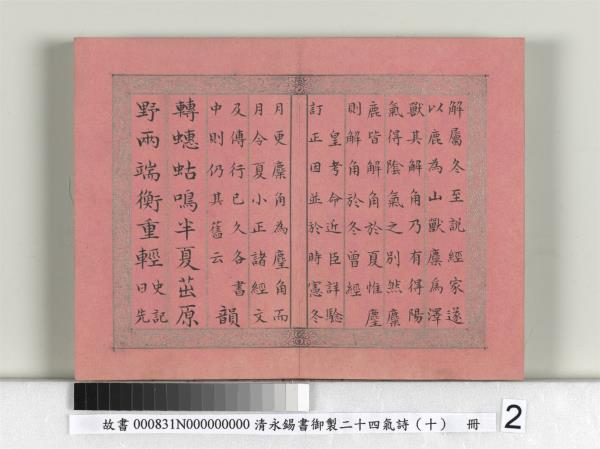 解屬冬至說經家遂
以鹿為山獸麋為澤
獸其解角乃有得陽
氣得陰氣之別然麋
鹿皆解角於夏惟麈
則解角於冬曾經
皇考命近臣詳驗
訂正因並於時憲冬
月更麋角為麈角而
月令夏小正諸經文
及傳行已久各書
中則仍其舊云 韻
轉蟪蛄鳴半夏茁原
野兩端衡重輕史記
日先
故書 000831N000000000 清永錫書御製二十四氣詩（十） 冊
2